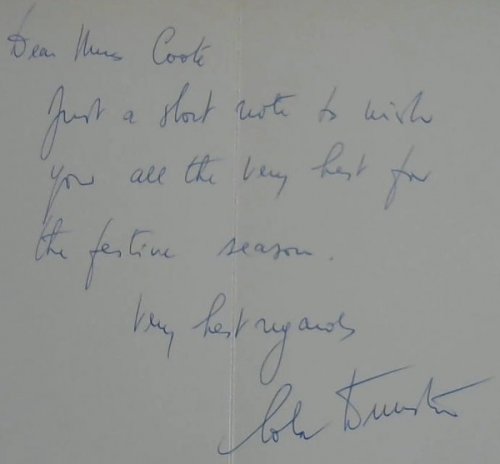 Dear Miss Cooté
Just a short note to wish
you all the very best for
the festive season.
Very best regards